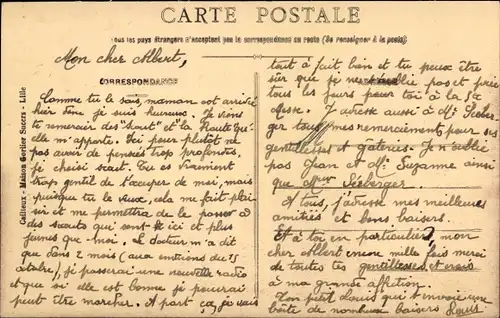 CARTE POSTALE
Tous les pays étrangers n'acceptent pas la correspondance au recto (Se renseigner à la poste)
Mon cher Albert,
CORRESPONDANCE
Cailteux - Maison Gorlier Succrs - Lille
Comme tu le sais, maman est arrivée
hier donc je suis heureux. Je viens
te remercier des "Scout" et la
elle m'apporte. Ici pour plutôt ne
pas avoir de pensées trop profondes,
je choisi scout. Tu es vraiment
trop gentil de t'occuper de moi, mais
puisque tu le veux, cela me fait plai-
sir et me permettra de le passer à
des scouts qui sont ici et plus
jeunes que moi. Le docteur m'a dit
que dans 2 mois (aux environs du 15
octobre), je passerai une nouvelle radio
et que si elle est bonne je pourrai
peut être marcher. A part ça, je vais
tout à fait bien et tu peux être
sûr que je ne oublie pas et prie
tous les jours pour toi à la Ste
Messe. J'adresse aussi à Mr Seeber-
ger tous mes remerciements pour ses
gentillesses et gateries. Je n'oublie
pas Jean et Suzanne ainsi
que Seeberger.
A tous, j'adresse mes meilleures
amitiés et bons baisers.
Et à toi en particulier, mon
cher Albert encore mille fois merci
de toutes tes gentillesses et crois
à ma grande affection.
Ton petit Louis qui t'envoie une
boîte de nombreux baisers Louis